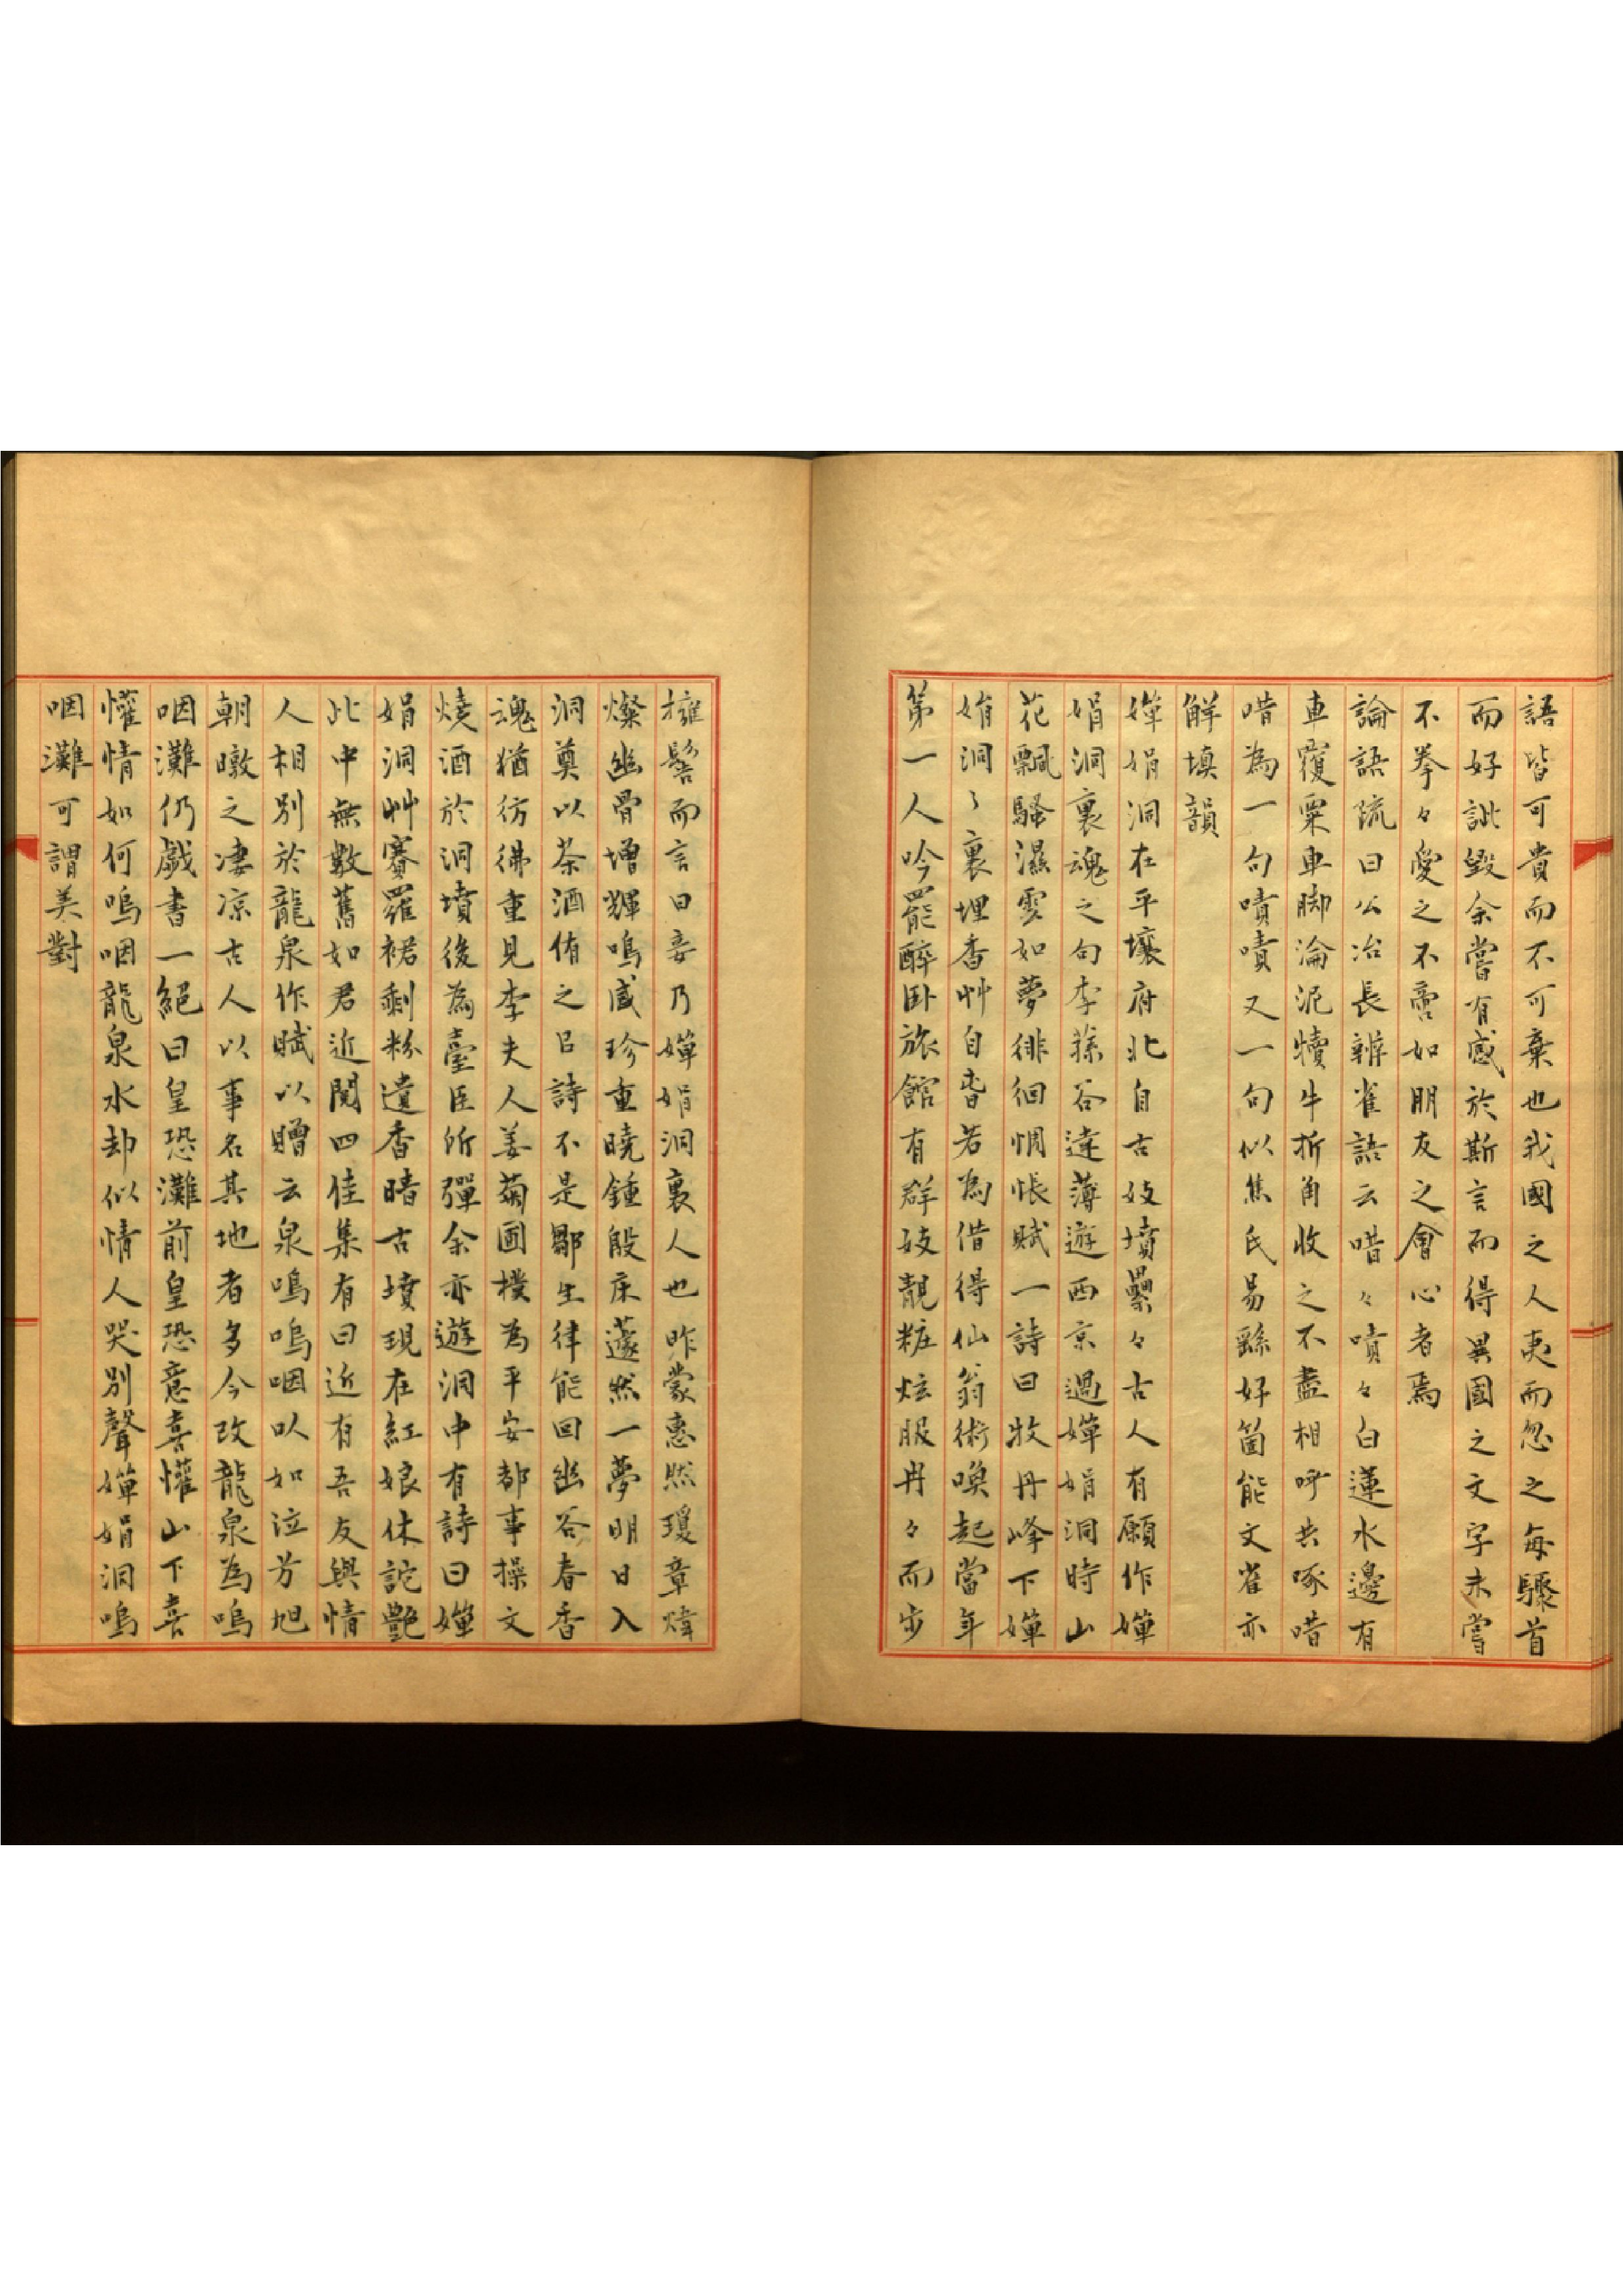 語皆可貴而不可棄也我國之人夷而忽之每驟首
而好訿毀余嘗有感於斯言而得異國之文字未嘗
不拳々愛之不啻如朋友之會心者焉
論語疏曰公冶長辨雀語云唶々嘖々白蓮水邊有
車覆粟車脚淪泥犢牛折角收之不盡相呼共啄唶
唶為一句嘖嘖又一句似焦氏易繇好箇能文雀亦
解填韻
嬋娟洞在平壤府北自古妓墳纍々古人有願作嬋
娟洞裏魂之句李蓀谷達薄遊西京過嬋娟洞時山
花飄騷濕雲如夢徘徊惆悵賦一詩曰牧丹峰下嬋
娟洞々裏埋香艸自春若為借得仙翁術喚起當年
第一人吟罷醉臥旅館有群妓靚粧炫服冉々而步
擁髻而言曰妾乃嬋娟洞裏人也昨蒙惠然瓊章煒
燦幽骨增輝鳴感珍重曉鍾殷床蘧然一夢明日入
洞奠以茶酒侑之㠯詩不是鄒生律能回幽谷春香
魂猶彷彿重見李夫人姜菊圃樸為平安都事操文
燒酒於洞墳後為臺臣所彈余亦遊洞中有詩曰嬋
娟洞艸賽羅裙剩粉遺香暗古墳現在紅娘休詑艷
此中無數舊如君近閱四佳集有曰近有吾友與情
人相別於龍泉作賦以贈云泉鳴鳴咽以如泣芳旭
朝暾之凄凉古人以事名其地者多今改龍泉為嗚
咽灘仍戲書一絕曰皇恐灘前皇恐意喜懽山下喜
懽情如何嗚咽龍泉水却似情人哭別聲嬋娟洞嗚
咽灘可謂美對